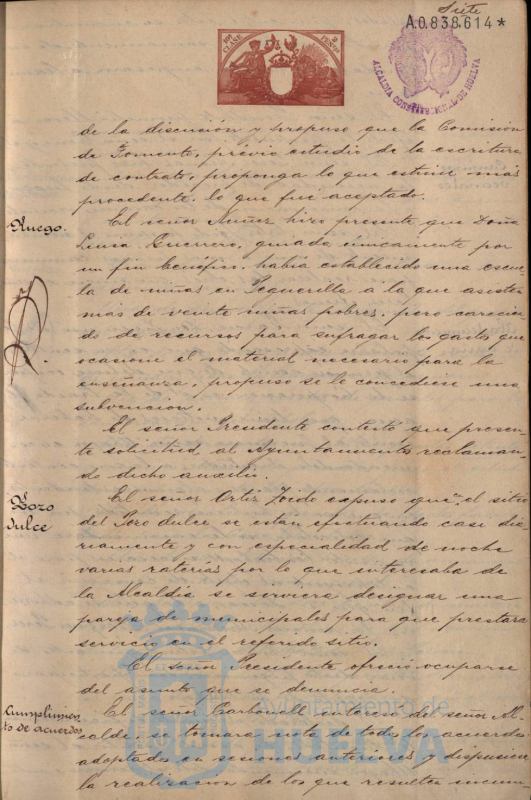 Siete
A.0.838.614*
10ª CLASE
2 PESETAS
ALCALDIA CONSTITUCIONAL DE HUELVA
de la discusión y propuso que la Comisión
de Fomento, prévio estudio de la escritura
de contrato, proponga lo que estime más
procedente, lo que fué aceptado.
Ruego.
El señor Nuñez hizo presente que Doña
Luisa Guerrero, guiada únicamente por
un fin benéfico, había establecido una escue
la de niñas en Peguerilla á la que asisten
más de veinte niñas pobres, pero carecien
do de recursos para sufragar los gastos que
ocasione el material necesario para la
enseñanza, propuso se le concediese una
subvencion.
El señor Presidente contestó que presen
te solicitud al Ayuntamiento reclaman
do dicho auxilio.
Pozo
dulce
El señor Ortiz Zoido expuso que en el sitio
del Pozo dulce, se están efectuando casi dia
riamente y con especialidad de noche
varias raterías por lo que interesaba de
la Alcaldía se sirviera designar una
pareja de municipales para que prestara
servicio en el referido sitio.
El señor Presidente ofreció ocuparse
del asunto que se denuncia.
Cumplimien
to de acuerdos
El señor Carbonell interesó del señor Al
calde, se tomara nota de todos los acuerdos
adoptados en sesiones anteriores y dispusiese
la realizacion de los que resulten incum
Ayuntamiento de
HUELVA